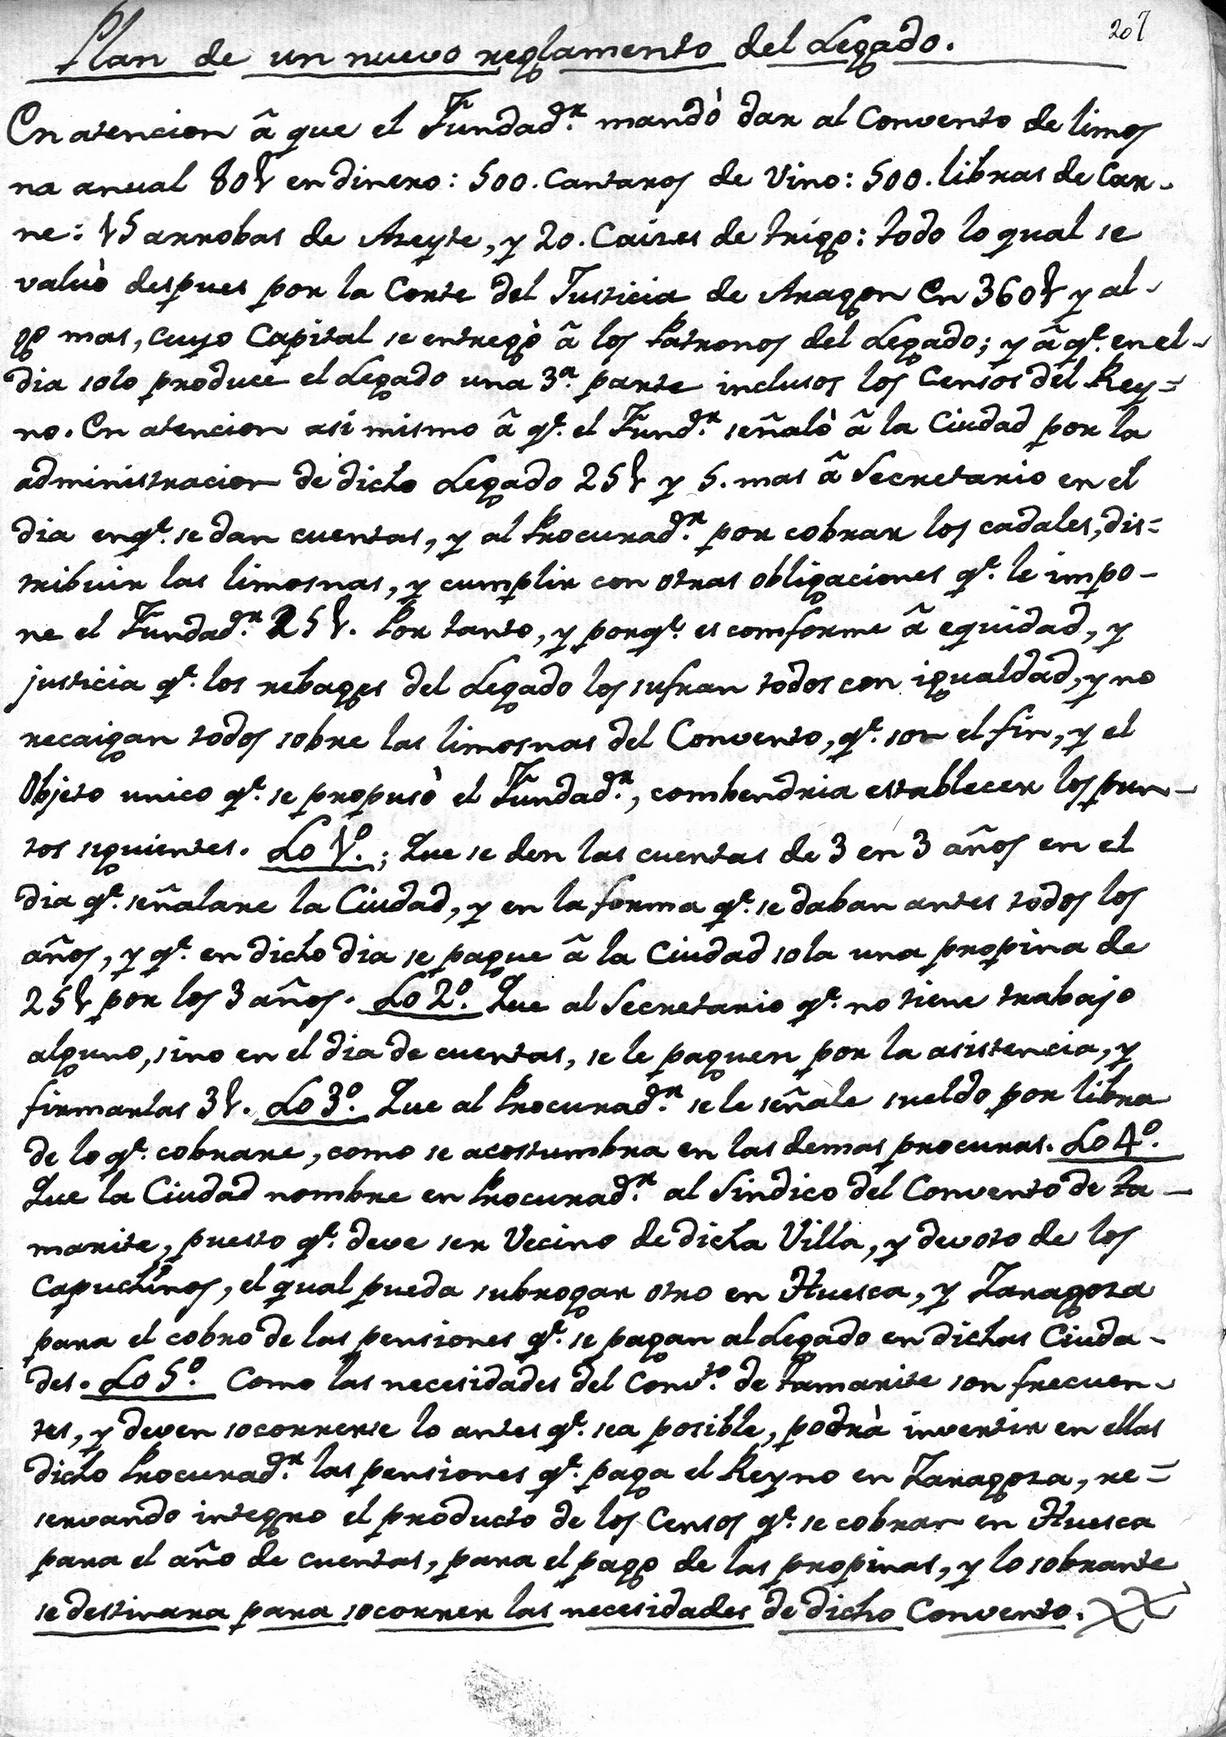 207
Plan de un nuevo reglamento del Legado.
En atencion â que el Fundad.r mandò dar al Convento de limos
na anual 80 L en dinero: 500. Cantaros de Vino: 500. libras de Car-
ne: 15 arrobas de Azeyte, y 20. Caizes de trigo: todo lo qual se
valuò despues por la Corte del Justicia de Aragon en 360 L y al-
go mas, cuyo Capital se entregò â los Patronos del Legado; y â q.e en el-
dia solo produce el Legado una 3.a parte inclusos los Censos del Rey=
no. En atencion asi mismo â q.e el Fund.r señalò â la Ciudad por la
administracion de dicho Legado 25 L y 5. mas â Secretario en el
dia en q.e se dan cuentas, y al Procurad.r por cobrar los cadales, dis=
tribuir las limosnas, y cumplir con otras obligaciones q.e le impo-
ne el Fundad.r 25 L. Por tanto, y porq.e es comforme â equidad, y
justicia q.e los rebages del Legado los sufran todos con igualdad, y no
recaigan todos sobre las limosnas del Convento, q.e son el fin, y el
Objeto unico q.e se propusò el Fundad.r, combendria establecer los pun-
tos siguientes. Lo 1.º; Que se den las cuentas de 3 en 3 años en el
dia q.e señalare la Ciudad, y en la forma q.e se daban antes todos los
años, y q.e en dicho dia se pague â la Ciudad sola una propina de
25 L por los 3 años. Lo 2.º Que al Secretario q.e no tiene trabajo
alguno, sino en el dia de cuentas, se le paguen por la asistencia, y
firmarlas 3 L. Lo 3.º Que al Procurad.r se le señale sueldo por libra
de lo q.e cobrare, como se acostumbra en las demas procuras. Lo 4.º
Que la Ciudad nombre en Procurad.r al Sindico del Convento de Ta-
marite, puesto q.e deve ser Vecino de dicha Villa, y devoto de los
Capuchinos, el qual pueda subrogar otro en Huesca, y Zaragoza
para el cobro de las pensiones q.e se pagan al Legado en dichas Ciuda-
des. Lo 5.º Como las necesidades del Conv.to de Tamarite son frecuen-
tes, y deven socorrerse lo antes q.e sea posible, podrà invertir en ellas
dicho Procurad.r las pensiones q.e paga el Reyno en Zaragoza, re=
servando integro el producto de los Censos q.e se cobran en Huesca
para el año de cuentas, para el pago de las propinas, y lo sobrante
se destinara para socorrer las necesidades de dicho Convento.